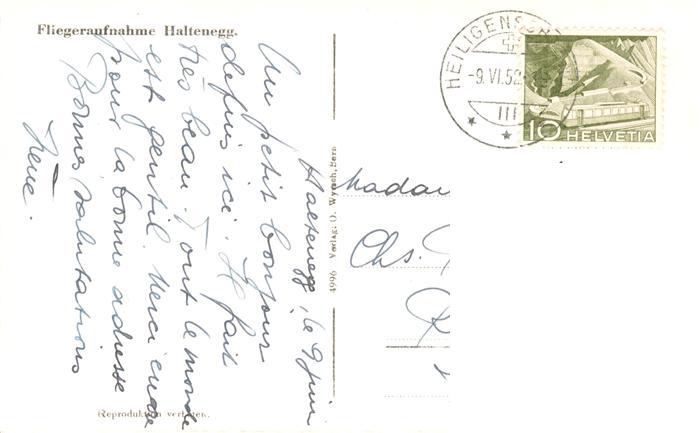 Fliegeraufnahme Haltenegg.
Haltenegg, le 9 juin
Un petit bonjour
depuis ici. Il fait
très beau. Tout le monde
est gentil. Merci encore
pour la bonne adresse
Bonnes salutations
Irène.
Reproduktion verboten.
4996 Verlag: O. Wyrsch, Bern
HEILIGENSCH
-9.VI.52
III
10 HELVETIA
Madam
Chs.